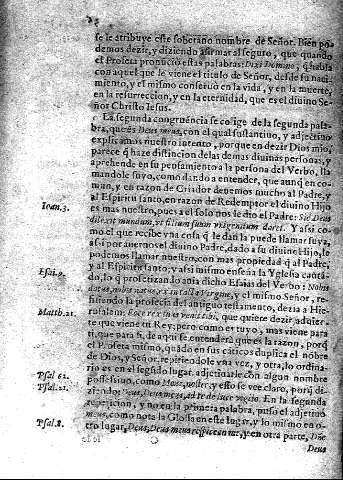 se le atribuye este soberano nombre de Señor. Bien po-
demos dezir, y diziendo afirmar al seguro, que quando
el Profeta pronūció estas palabras: Dixi Domino, q̄ habla
con aquel que le viene el titulo de Señor, desde su naci-
miento, y el mismo conseruò en la vida, y en la muerte,
en la resurreccion, y en la eternidad, que es el diuino Se-
ñor Christo Iesus.
La segunda congruencia se colige de la segunda pala-
bra, que es Deus meus, con el qual sustantiuo, y adjectiuo
explicamos nuestro intento, porque en dezir Dios mio,
parece q̄ haze distincion de las demas diuinas personas, y
aprehende en su pensamiento a la persona del Verbo, lla-
mandole suyo, como dando a entender, que aunq̄ en co-
mun, y en razon de Criador deuemos mucho al Padre, y
al Espiritu santo, en razon de Redemptor el diuino Hijo
Ioan. 3.
es mas nuestro, pues a el solo nos le dio el Padre: Sic Deus
dilexit mundum, vt filium suum vnigenitum daret. Y assi co-
mo el que recibe vna cosa q̄ le dan la puede llamar suya,
assi por auernos el diuino Padre, dado a su diuino Hijo, le
podemos llamar nuestro, con mas propiedad q̄ al Padre,
y al Espiritu santo; y assi mismo enseña la Yglesia cantā-
Esai. 9.
do, lo q̄ profetizando auia dicho Esaias del Verbo: Nobis
datus, nobis natus, ex intacta Virgine, y el mismo Señor, re-
firiendo la profecia del antiguo testamento, dezia a Hie-
Matth. 21.
rusalem: Ecce rex tuus venit tibi, que quiere dezir, aduier-
te que viene tu Rey; pero como es tuyo, mas viene para
ti, que para si, de aqui se entenderà que es la razon, porq̄
el Profeta mismo, quādo en sus canticos duplica el nōbre
de Dios, y Señor, repitiendole vna vez, y otra, lo ordina-
rio es en el segūdo lugar, adjectiuarle con algun nombre
Psal. 62.
possessiuo, como Meus, noster, y esto se vee claro, porq̄ di-
Psal. 21.
ziendo: Deus, Deus meus, ad te de luce vigilo. En la segunda
repeticion, y no en la primera palabra, puso el adjetiuo
meus, como nota la Glossa en este lugar, y lo mismo en o-
Psal. 8.
tro lugar, Deus, Deus meus respice in me, y en otra parte, Dñe
Deus